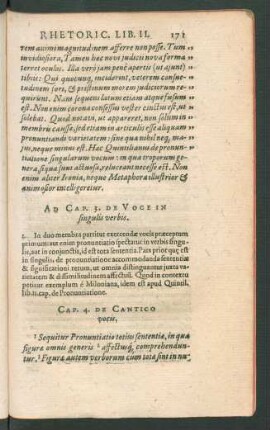 RHETORIC. LIB. II. 171
rem aut immagnitudinem afferre non posse. Tum
invidiosiora, Tamen hæc novi judicii nova forma
terret oculos. Illa verò jam penè apertis (ut ajunt)
tibiis: Qui quocunq, inciderint, veterem consue-
tudinem fori, & pristinum morem judiciorum re-
quirunt. Nam sequens latum etiam
Non enim corona consessus vester cinctus est, ut
solebat. Quod notatū, ut appareret, non solum in
membris causæ, sed etiam in articulis esse aliquam
pronuntiandi varietatem: sine qua nihil neq, ma-
jus, neque minus est. Hæc Quintilianus de pronun-
tiatione singularum vocum: in qua troporum gene-
ra, si qua sunt actuosa, relucent necesse est. Non
enim aliter Ironia, neque Metaphora illustrior &
animosior intelligetur.
AD CAP. 3. DE VOCE IN
singulis verbis.
1. In duo membra partitur exercendæ vocis præceptum
primum: aut enim pronuntiatio spectatur in verbis singu-
lis, aut in conjunctis, id est tota sententia. Pars prior quę est
in singulis, de pronuntiatione accommodanda sententiæ
& significationi rerum, ut omnia distinguantur juxta va-
rietatem & dissimilitudinem affectuū. Quod in contextu
petitur exemplum è Miloniana, idem est apud Quintil.
lib. 11. cap. de Pronuntiatione.
CAP. 4. DE CANTICO
vocis.
Sequitur Pronuntiatio totius sententiæ, in qua
figuræ omnis generis affectusq, comprehendun-
tur. Figuræ autem verborum cum totæ sint in nu-